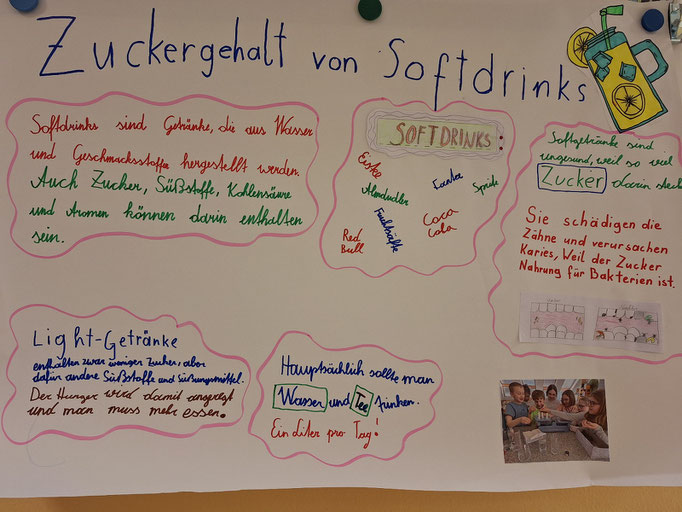 Zuckergehalt von Softdrinks
Softdrinks sind Getränke, die aus Wasser
und Geschmacksstoffen hergestellt werden.
Auch Zucker, Süßstoffe, Kohlensäure
und Aromen können darin enthalten
sein.
SOFTDRINKS:
Eistee
Almdudler
Fanta
Sprite
Fruchtsäfte
Coca
Cola
Red
Bull
Softgetränke sind
ungesund, weil so viel
Zucker darin steckt
Sie schädigen die
Zähne und verursachen
Karies, Weil der Zucker
Nahrung für Bakterien ist.
Light-Getränke
enthalten zwar weniger Zucker, aber
dafür andere Süßstoffe und Süßungsmittel.
Der Hunger wird damit angeregt
und man muss mehr essen.
Hauptsächlich sollte man
Wasser und Tee trinken.
Ein Liter pro Tag!